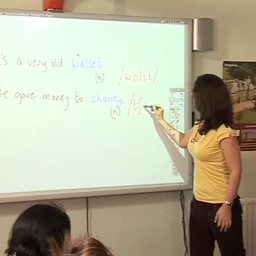 's a very old wallet
(n) /wɒlɪt/
e gave money to charity /tʃ
(n)